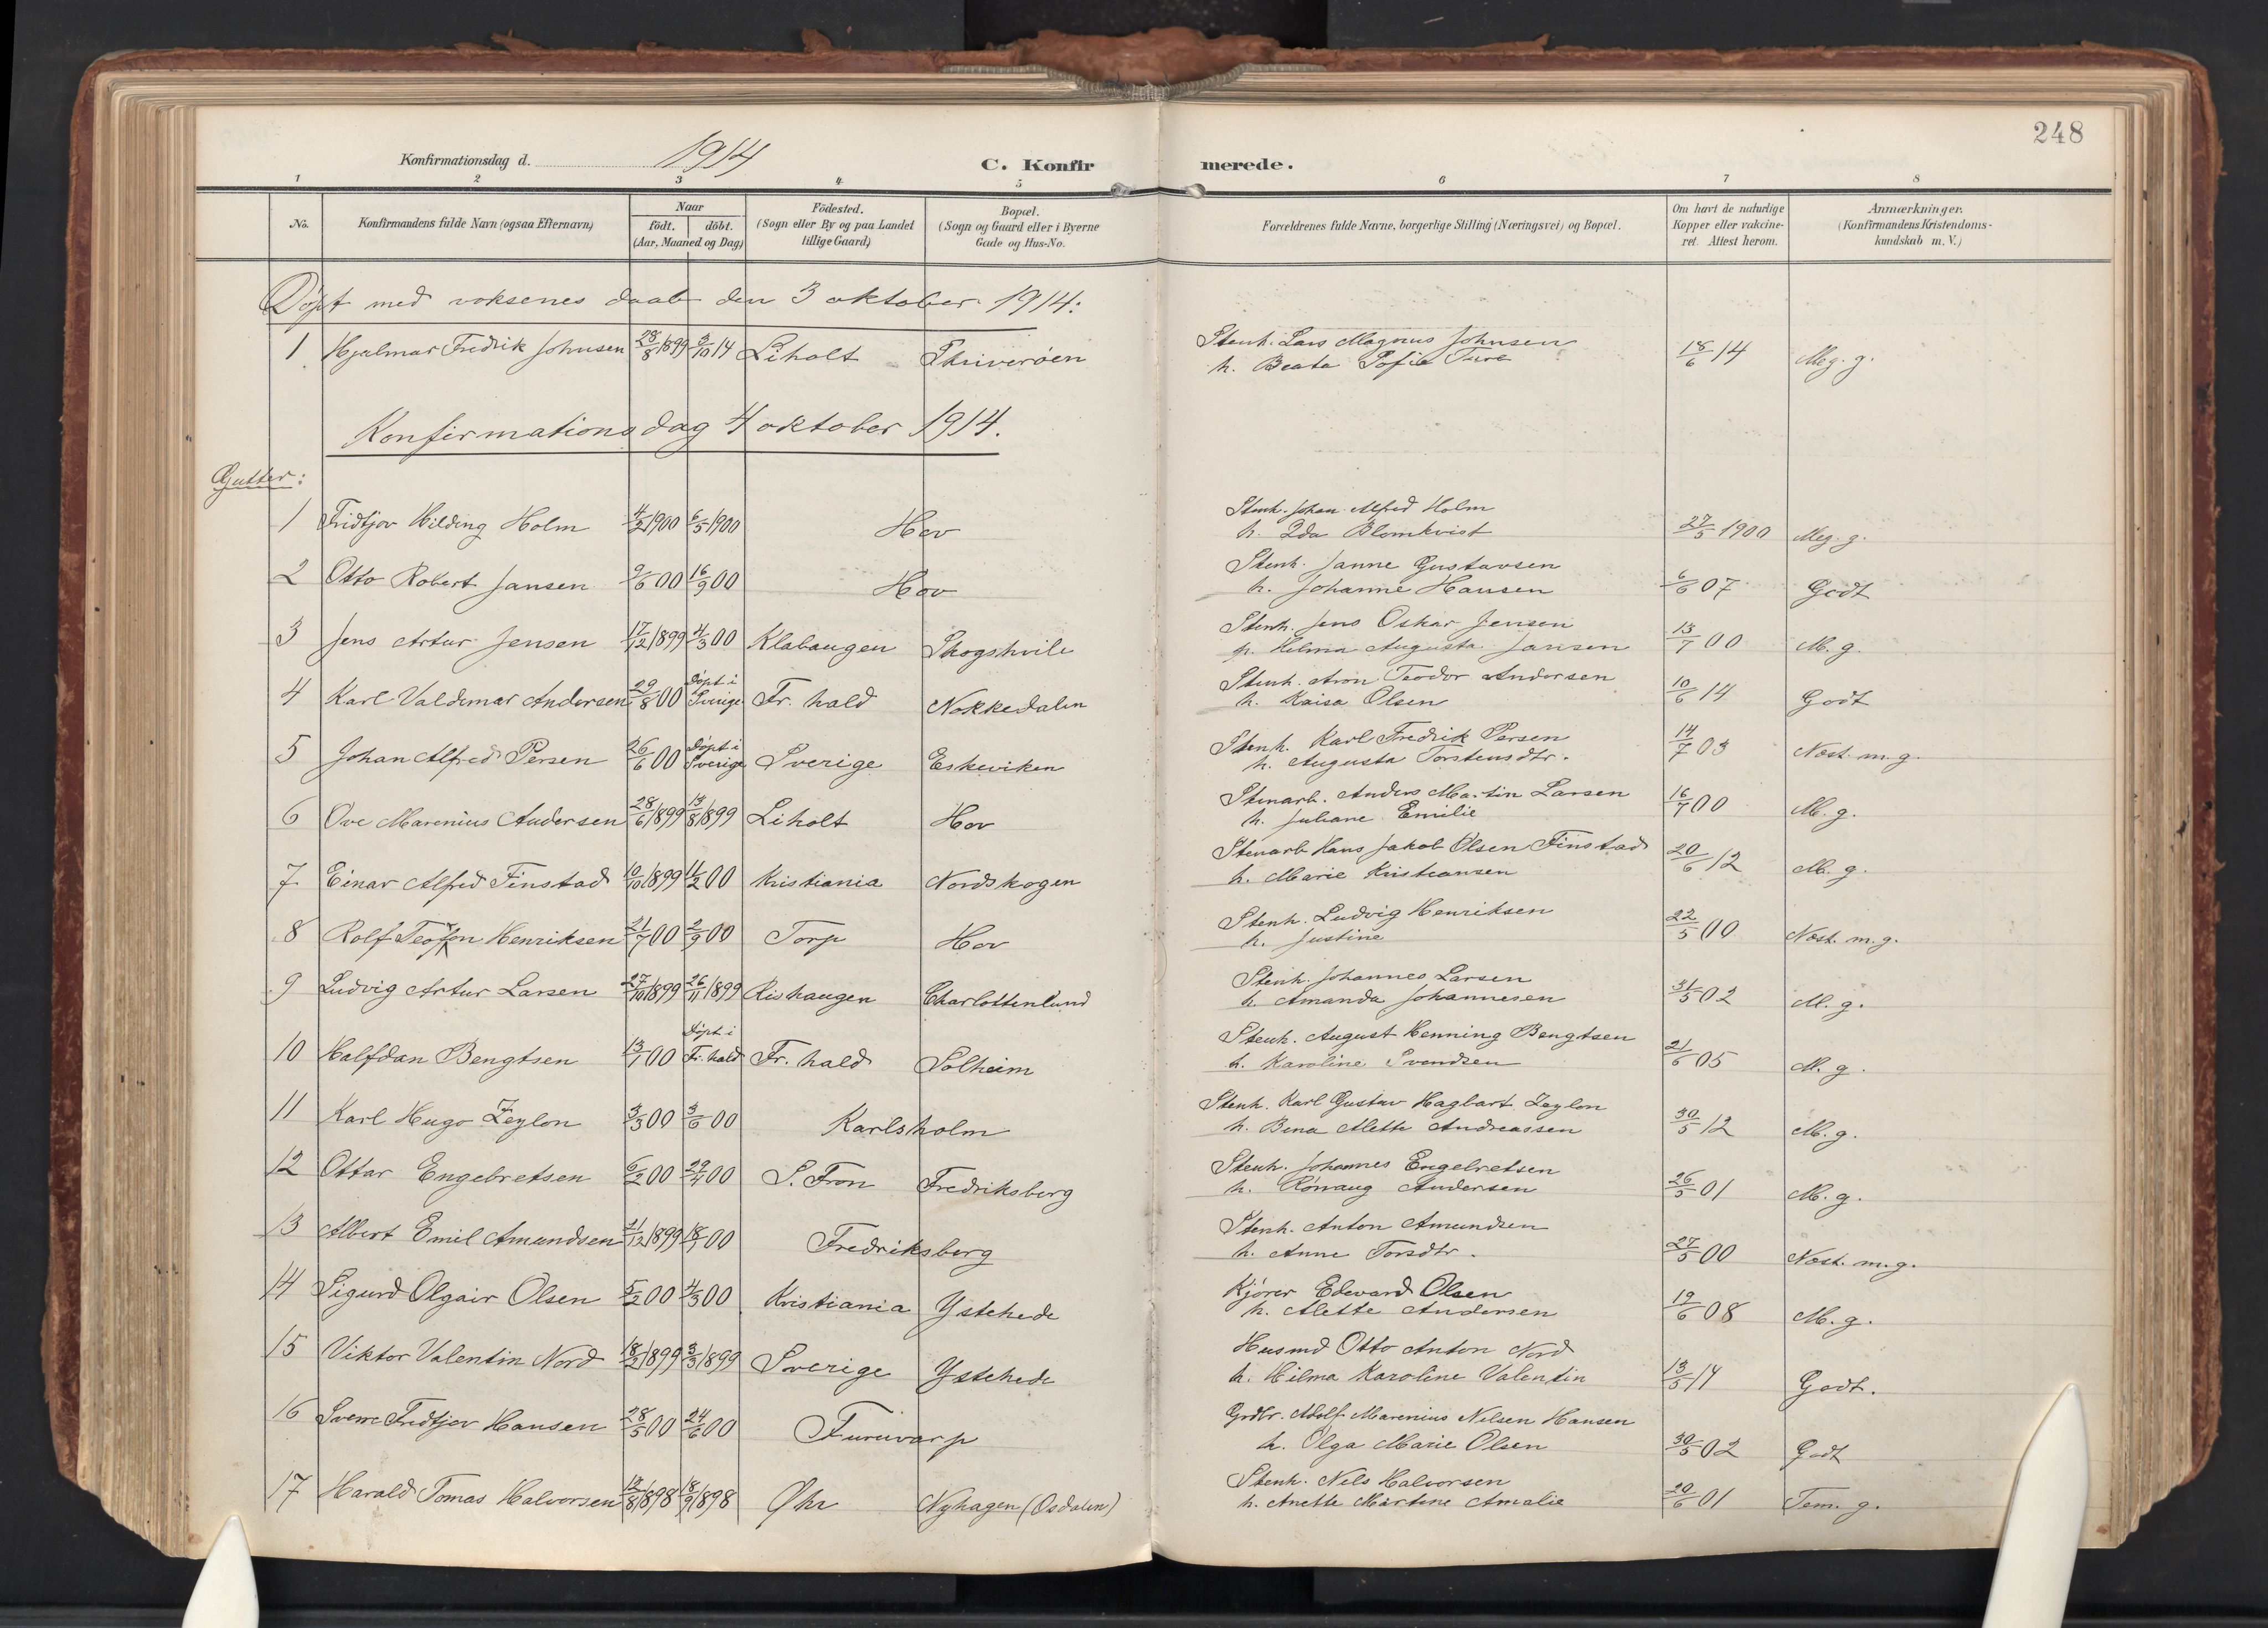 248
Konfirmationsdag d. 1914
C. Konfirmerede.
1 2 3 4 5 6 7 8
No.
Konfirmandens fulde Navn (ogsaa Efternavn)
Naar
födt. döbt.
(Aar, Maaned og Dag)
Födested.
(Sogn eller By og paa Landet
tillige Gaard)
Bopæl.
(Sogn og Gaard eller i Byerne
Gade og Hus-No.
Forældrenes fulde Navne, borgerlige Stilling (Næringsvei) og Bopæl.
Om havt de naturlige
Kopper eller vakcine-
ret. Attest herom.
Anmærkninger.
(Konfirmandens Kristendoms-
kundskab m. V.)
Døpt med voksenes daab den 3 oktober 1914:
1 Hjalmar Fredrik Johnsen 28/8 1899 3/10 14 Liholt Skriverøen Stenh. Lars Magnus Johnsen
h. Beata Sofie 18/6 14 Meg. g.
Konfirmationsdag 4 oktober 1914.
Gutter:
1 Fridtjov Hilding Holm 4/2 1900 6/5 1900 Hov Stenh. Johan Alfred Holm
h. Ida Blomkvist 27/5 1900 Meg. g.
2 Otto Robert Jansen 9/6 00 16/9 00 Hov Stenh. Janne Gustavsen
h. Johanne Hansen 6/6 07 Godt
3 Jens Artur Jensen 17/12 1899 4/3 00 Klabaugen Skogshvile Stenh. Jens Oskar Jensen
h. Helma Augusta Jansen 13/7 00 M. g.
4 Karl Valdemar Andersen 29/8 00 Døpt i Sverige Fr. hald Nokkedalen Stenh. Aron Teodor Andersen
h. Kaisa Olsen 10/6 14 Godt
5 Johan Alfred Persen 26/6 00 Døpt i Sverige Sverige Eskeviken Stenh. Karl Fredrik Persen
h. Augusta Torstensdtr. 14/7 03 Næst. m. g.
6 Ove Marenius Andersen 28/6 1899 13/8 1899 Liholt Hov Stenarb. Anders Martin Larsen
h. Juliane Emilie 16/7 00 M. g.
7 Einar Alfred Finstad 10/10 1899 11/2 00 Kristiania Nordskogen Stenarb Hans Jakob Olsen Finstad
h. Marie Kristiansen 20/6 12 M. g.
8 Rolf Henriksen 21/7 00 2/9 00 Torp Hov Stenh. Ludvig Henriksen
h. Justine 22/5 00 Næst. m. g.
9 Ludvig Artur Larsen 27/10 1899 26/11 1899 Rishaugen Charlottenlund Stenh. Johannes Larsen
h. Amanda Johannesen 31/5 02 M. g.
10 Halfdan Bengtsen 13/1 00 Døpt i Fr. hald Fr. hald Solheim Stenh. August Henning Bengtsen
h. Karoline Svendsen 21/6 05 M. g.
11 Karl Hugo Zeylon 3/3 00 3/6 00 Karlsholm Stenh. Karl Gustav Hagbart Zeylon
h. Bina Alette Andreassen 30/5 12 M. g.
12 Ottar Engebretsen 6/2 00 29/4 00 S. Fron Fredriksberg Stenh. Johannes Engebretsen
h. Rønnaug Andersen 26/5 01 M. g.
13 Albert Emil Amundsen 21/12 1899 18/1 00 Fredriksberg Stenh. Anton Amundsen
h. Anne Torsdtr. 27/5 00 Næst. m. g.
14 Sigurd Olgair Olsen 5/2 00 4/3 00 Kristiania Ystehede Kjører Edevard Olsen
h. Alette Andersen 19/6 08 M. g.
15 Viktor Valentin Nord 18/2 1899 3/3 1899 Sverige Ystehede Husmd Otto Anton Nord
h. Hilma Karoline Valentin 13/5 14 Godt.
16 Sverre Fridtjov Hansen 28/5 00 24/6 00 Furuvarp Grdbr. Adolf Marenius Nilsen Hansen
h. Olga Marie Olsen 30/5 02 Godt
17 Harald Tomas Halvorsen 12/8 1898 18/9 1898 Øhr Nyhagen (Osdalen) Stenh. Nils Halvorsen
h. Anette Martine Amalie 20/6 01 Tem. g.